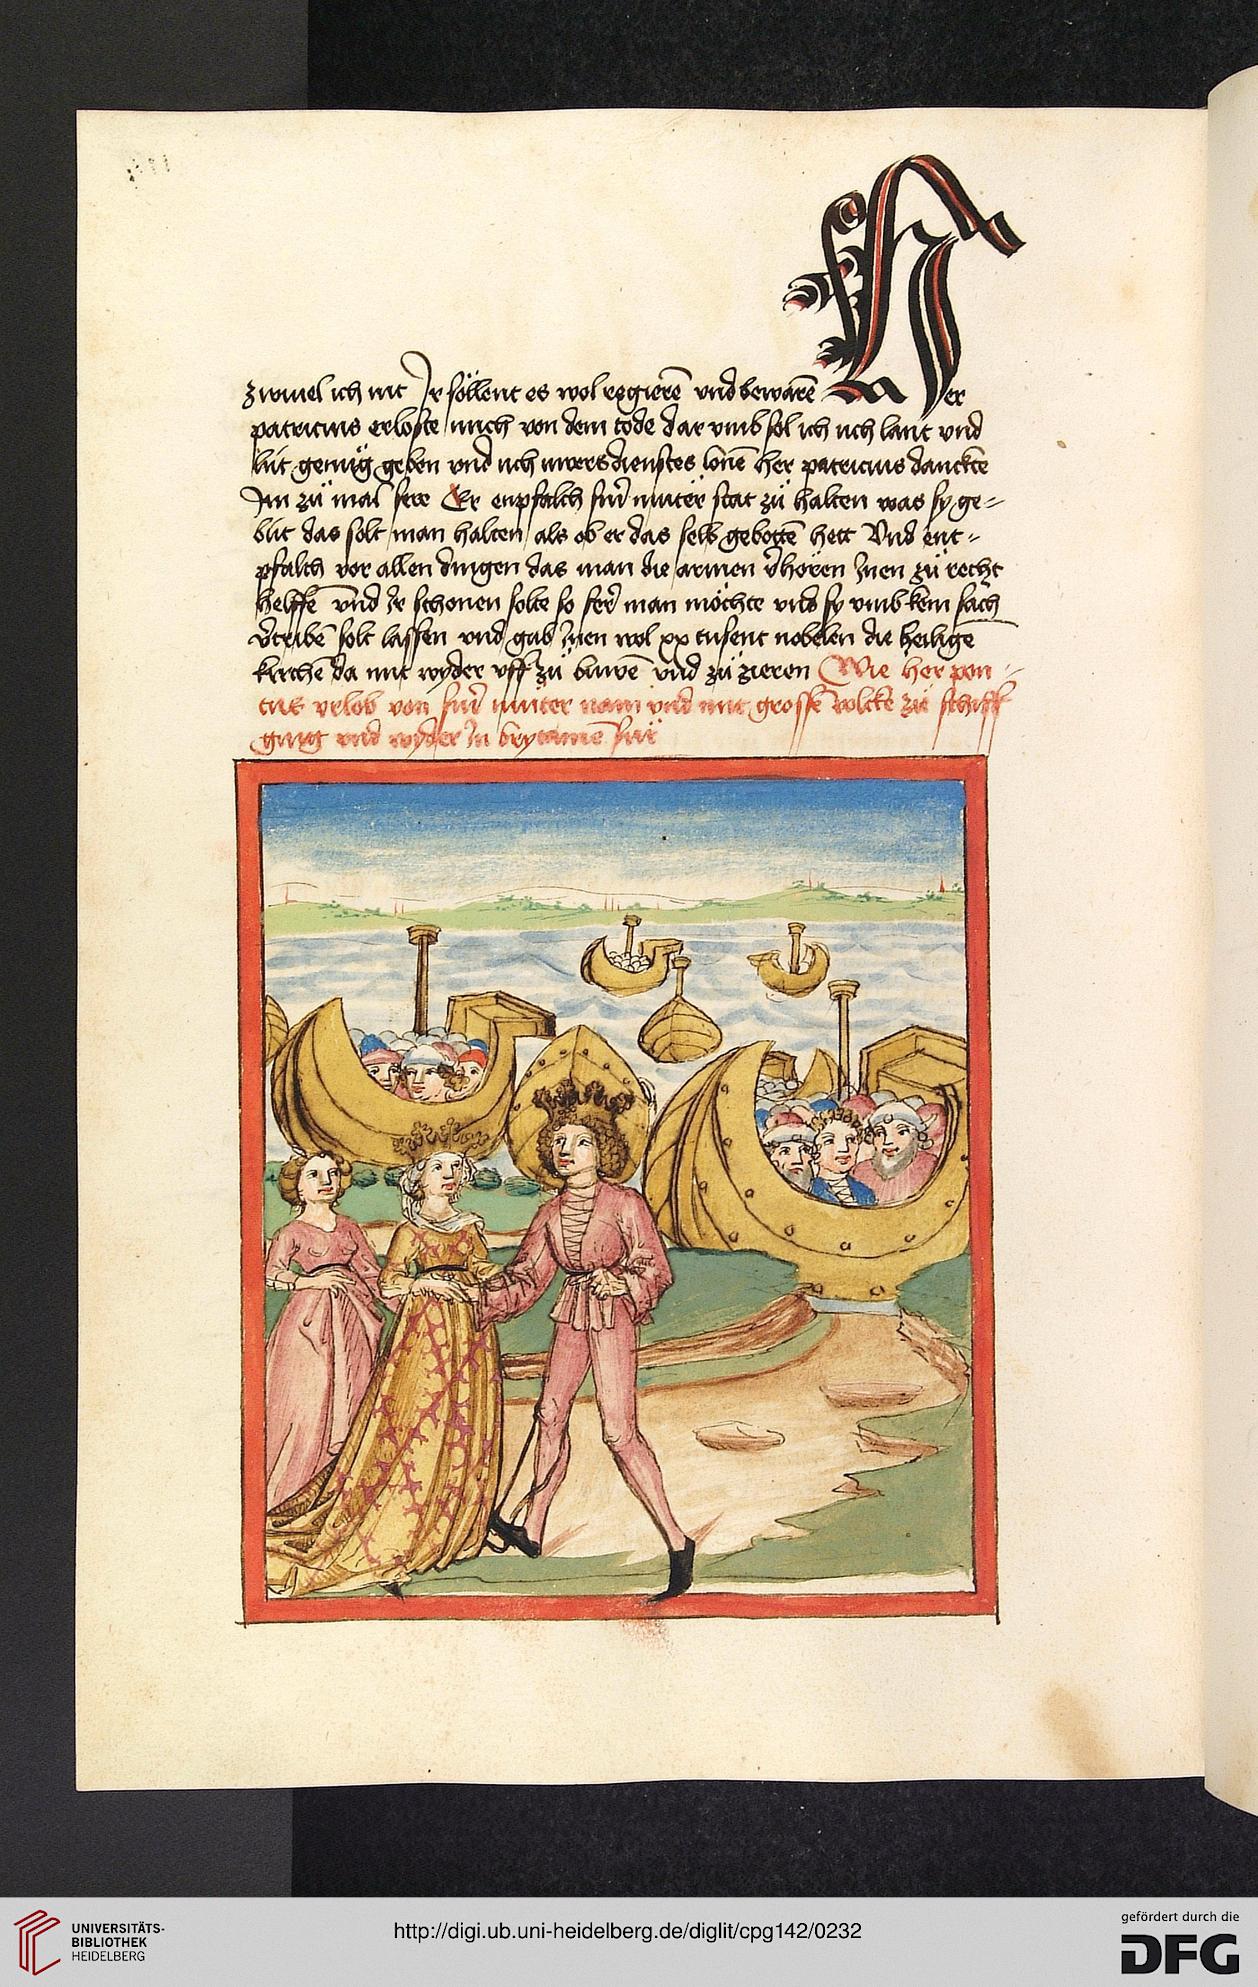 zwiuel ich nit Ir söllent es wol regierē vnd bewarē Her
patricius erloste mich von dem tode dar vmb sol ich uch lant vnd
lüt genüg geben vnd uch uwers dienstes lonē her patricius danckte
Im zü mal sere Er enpfalch sinr̄ mütër stat zü halten was sy ge-
büt das solt man halten als ob er das selb gebottē hett Vnd ent-
pfalch vor allen dingen das man die armen v̄hören Inen zü recht
helffē vnd Ir schonen solte so fer̄ man möchte vnd sy vmb kein sach
v̄tribē solt lassen vnd gab Inen wol xx tusent nobelen die heiligē
kirchē da mit wyder vff zü buwē vnd zü zieren Wie her pon-
tus vrlob von sinr̄ müter nam vnd mit grossē volcke zü schiff
ging vnd wyder In brytaniē für
UNIVERSITÄTS-
BIBLIOTHEK
HEIDELBERG
http://digi.ub.uni-heidelberg.de/diglit/cpg142/0232
gefördert durch die
DFG